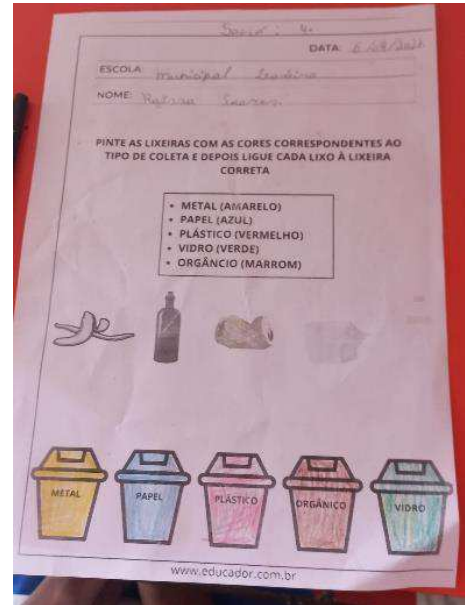 Série: 4º
DATA:
ESCOLA: Municipal
NOME: Soares
PINTE AS LIXEIRAS COM AS CORES CORRESPONDENTES AO
TIPO DE COLETA E DEPOIS LIGUE CADA LIXO À LIXEIRA
CORRETA
• METAL (AMARELO)
• PAPEL (AZUL)
• PLÁSTICO (VERMELHO)
• VIDRO (VERDE)
• ORGÂNCIO (MARROM)
METAL PAPEL PLÁSTICO ORGÂNICO VIDRO
www.educador.com.br